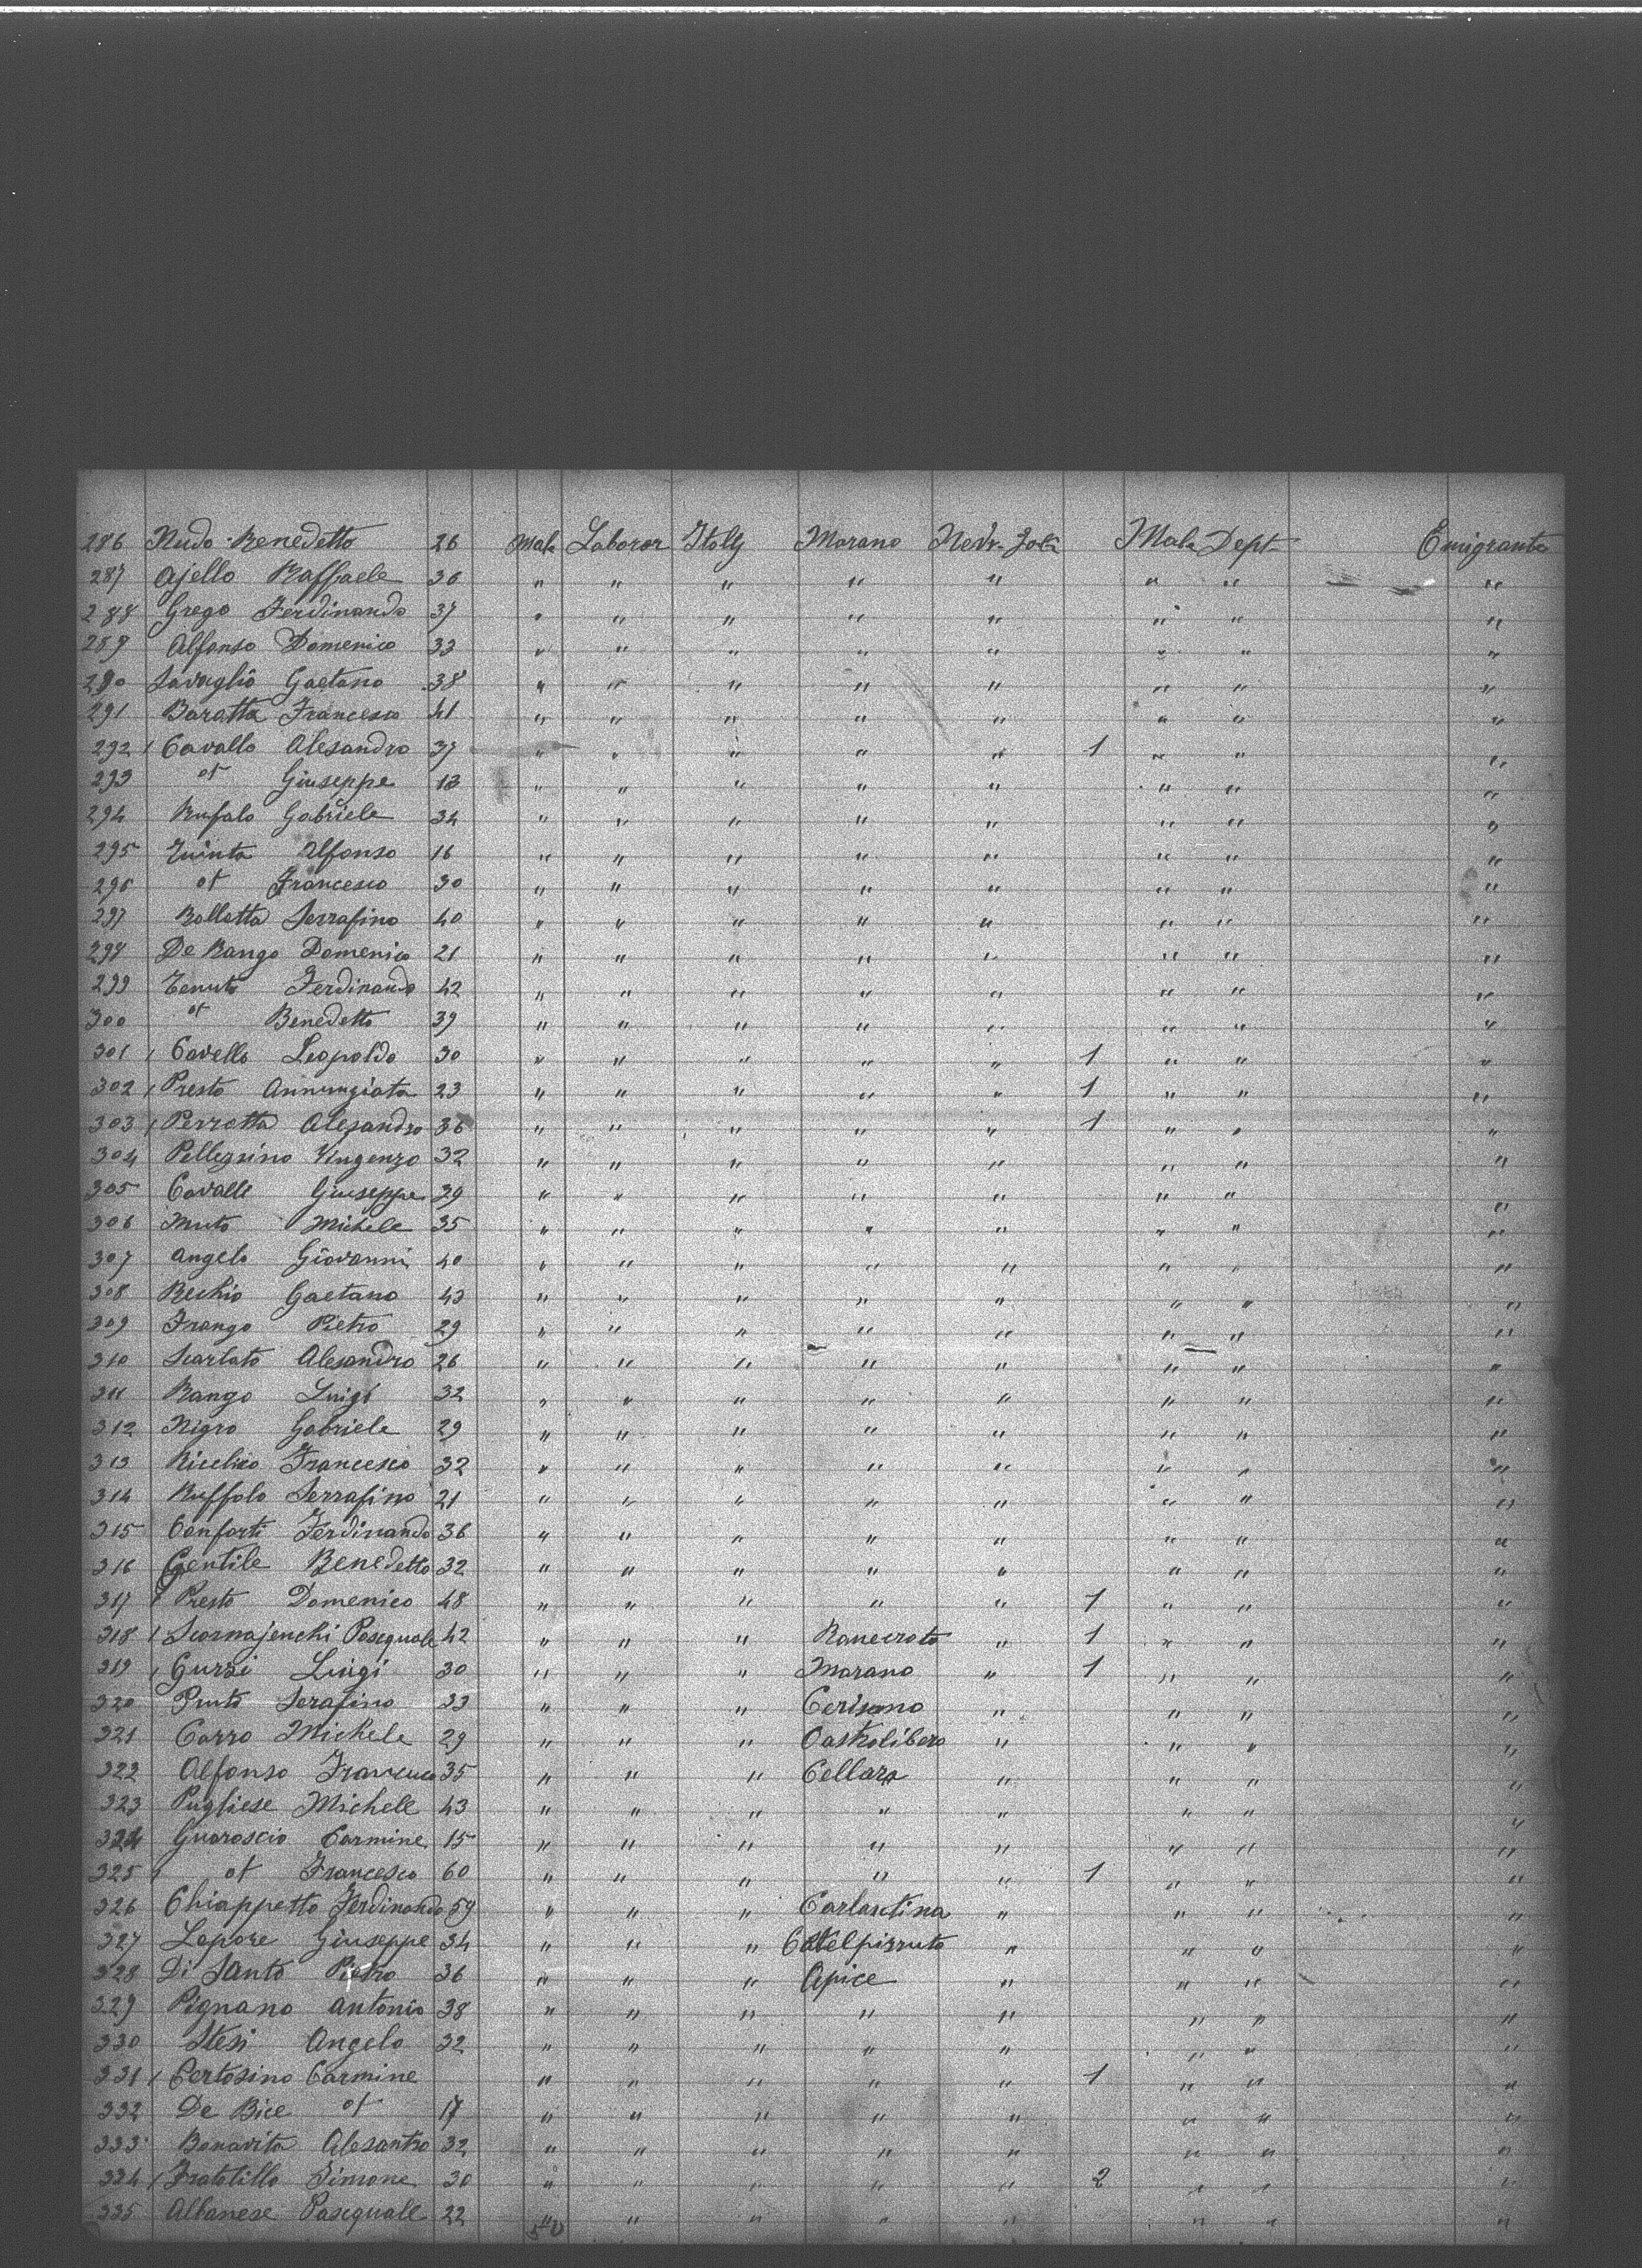 286 Nudo Benedetto 26 Male Laboror Italy Marano New-York Male Dept Emigrants
287 Ajello Raffaele 36 " " " " " " " "
288 Grego Ferdinando 37 " " " " " " " "
289 Alfonso Domenico 33 " " " " " " " "
290 Savaglio Gaetano 38 " " " " " " " "
291 Baratta Francesco 41 " " " " " " " "
292 / Cavallo Alesandro 37 " " " " " 1 " " "
293 ot Giuseppe 13 " " " " " " " "
294 Rufalo Gabriele 34 " " " " " " " "
295 Quinta Alfonso 16 " " " " " " " "
296 ot Francesco 30 " " " " " " " "
297 Bellotta Serrafino 40 " " " " " " " "
298 De Rango Domenico 21 " " " " " " " "
299 Tenuto Ferdinando 42 " " " " " " " "
300 ot Benedetto 39 " " " " " " " "
301 / Cavello Leopoldo 30 " " " " " 1 " " "
302 / Presto Annunziata 23 " " " " " 1 " " "
303 / Perrotta Alesandro 36 " " " " " 1 " " "
304 Pellegrino Vingenzo 32 " " " " " " " "
305 Cavalle Giuseppe 39 " " " " " " " "
306 Muto Michele 35 " " " " " " " "
307 Angelo Giovanni 40 " " " " " " " "
308 Rechio Gaetano 43 " " " " " " " "
309 Frango Pietro 29 " " " " " " " "
310 Scarlato Alesandro 26 " " " " " " " "
311 Rango Luigi 32 " " " " " " " "
312 Nigro Gabriele 29 " " " " " " " "
313 Francesco 32 " " " " " " " "
314 Ruffolo Serrafino 21 " " " " " " " "
315 Conforti Ferdinando 36 " " " " " " " "
316 Gentile Benedetto 32 " " " " " " " "
317 / Presto Domenico 48 " " " " " 1 " " "
318 / Scornajenchi Pasequale 42 " " " " 1 " " "
319 / Gurzi Luigi 30 " " " Marano " 1 " " "
320 Pinto Serafino 33 " " " Cerisano " " " "
321 Carro Michele 29 " " " Castrolibero " " " "
322 Alfonso Francesco 35 " " " Cellara " " " "
323 Pugliese Michele 43 " " " " " " " "
324 Guaroscio Carmine 15 " " " " " " " "
325 / ot Francesco 60 " " " " " 1 " " "
326 Chiappetto Ferdinando 59 " " " Carlantina " " " "
327 Lepore Giuseppe 34 " " " Catelpizzuto " " " "
328 Di Santo Pietro 36 " " " Apice " " " "
329 Pignano Antonio 38 " " " " " " " "
330 Stesi Angelo 32 " " " " " " " "
331 / Certosino Carmine " " " " " 1 " " "
332 De Bice ot 17 " " " " " " " "
333 Bonavita Alesantro 32 " " " " " " " "
334 / Fratotillo Simone 30 " " " " " 2 " " "
335 Albanese Pasequale 22 " " " " " " " "
50